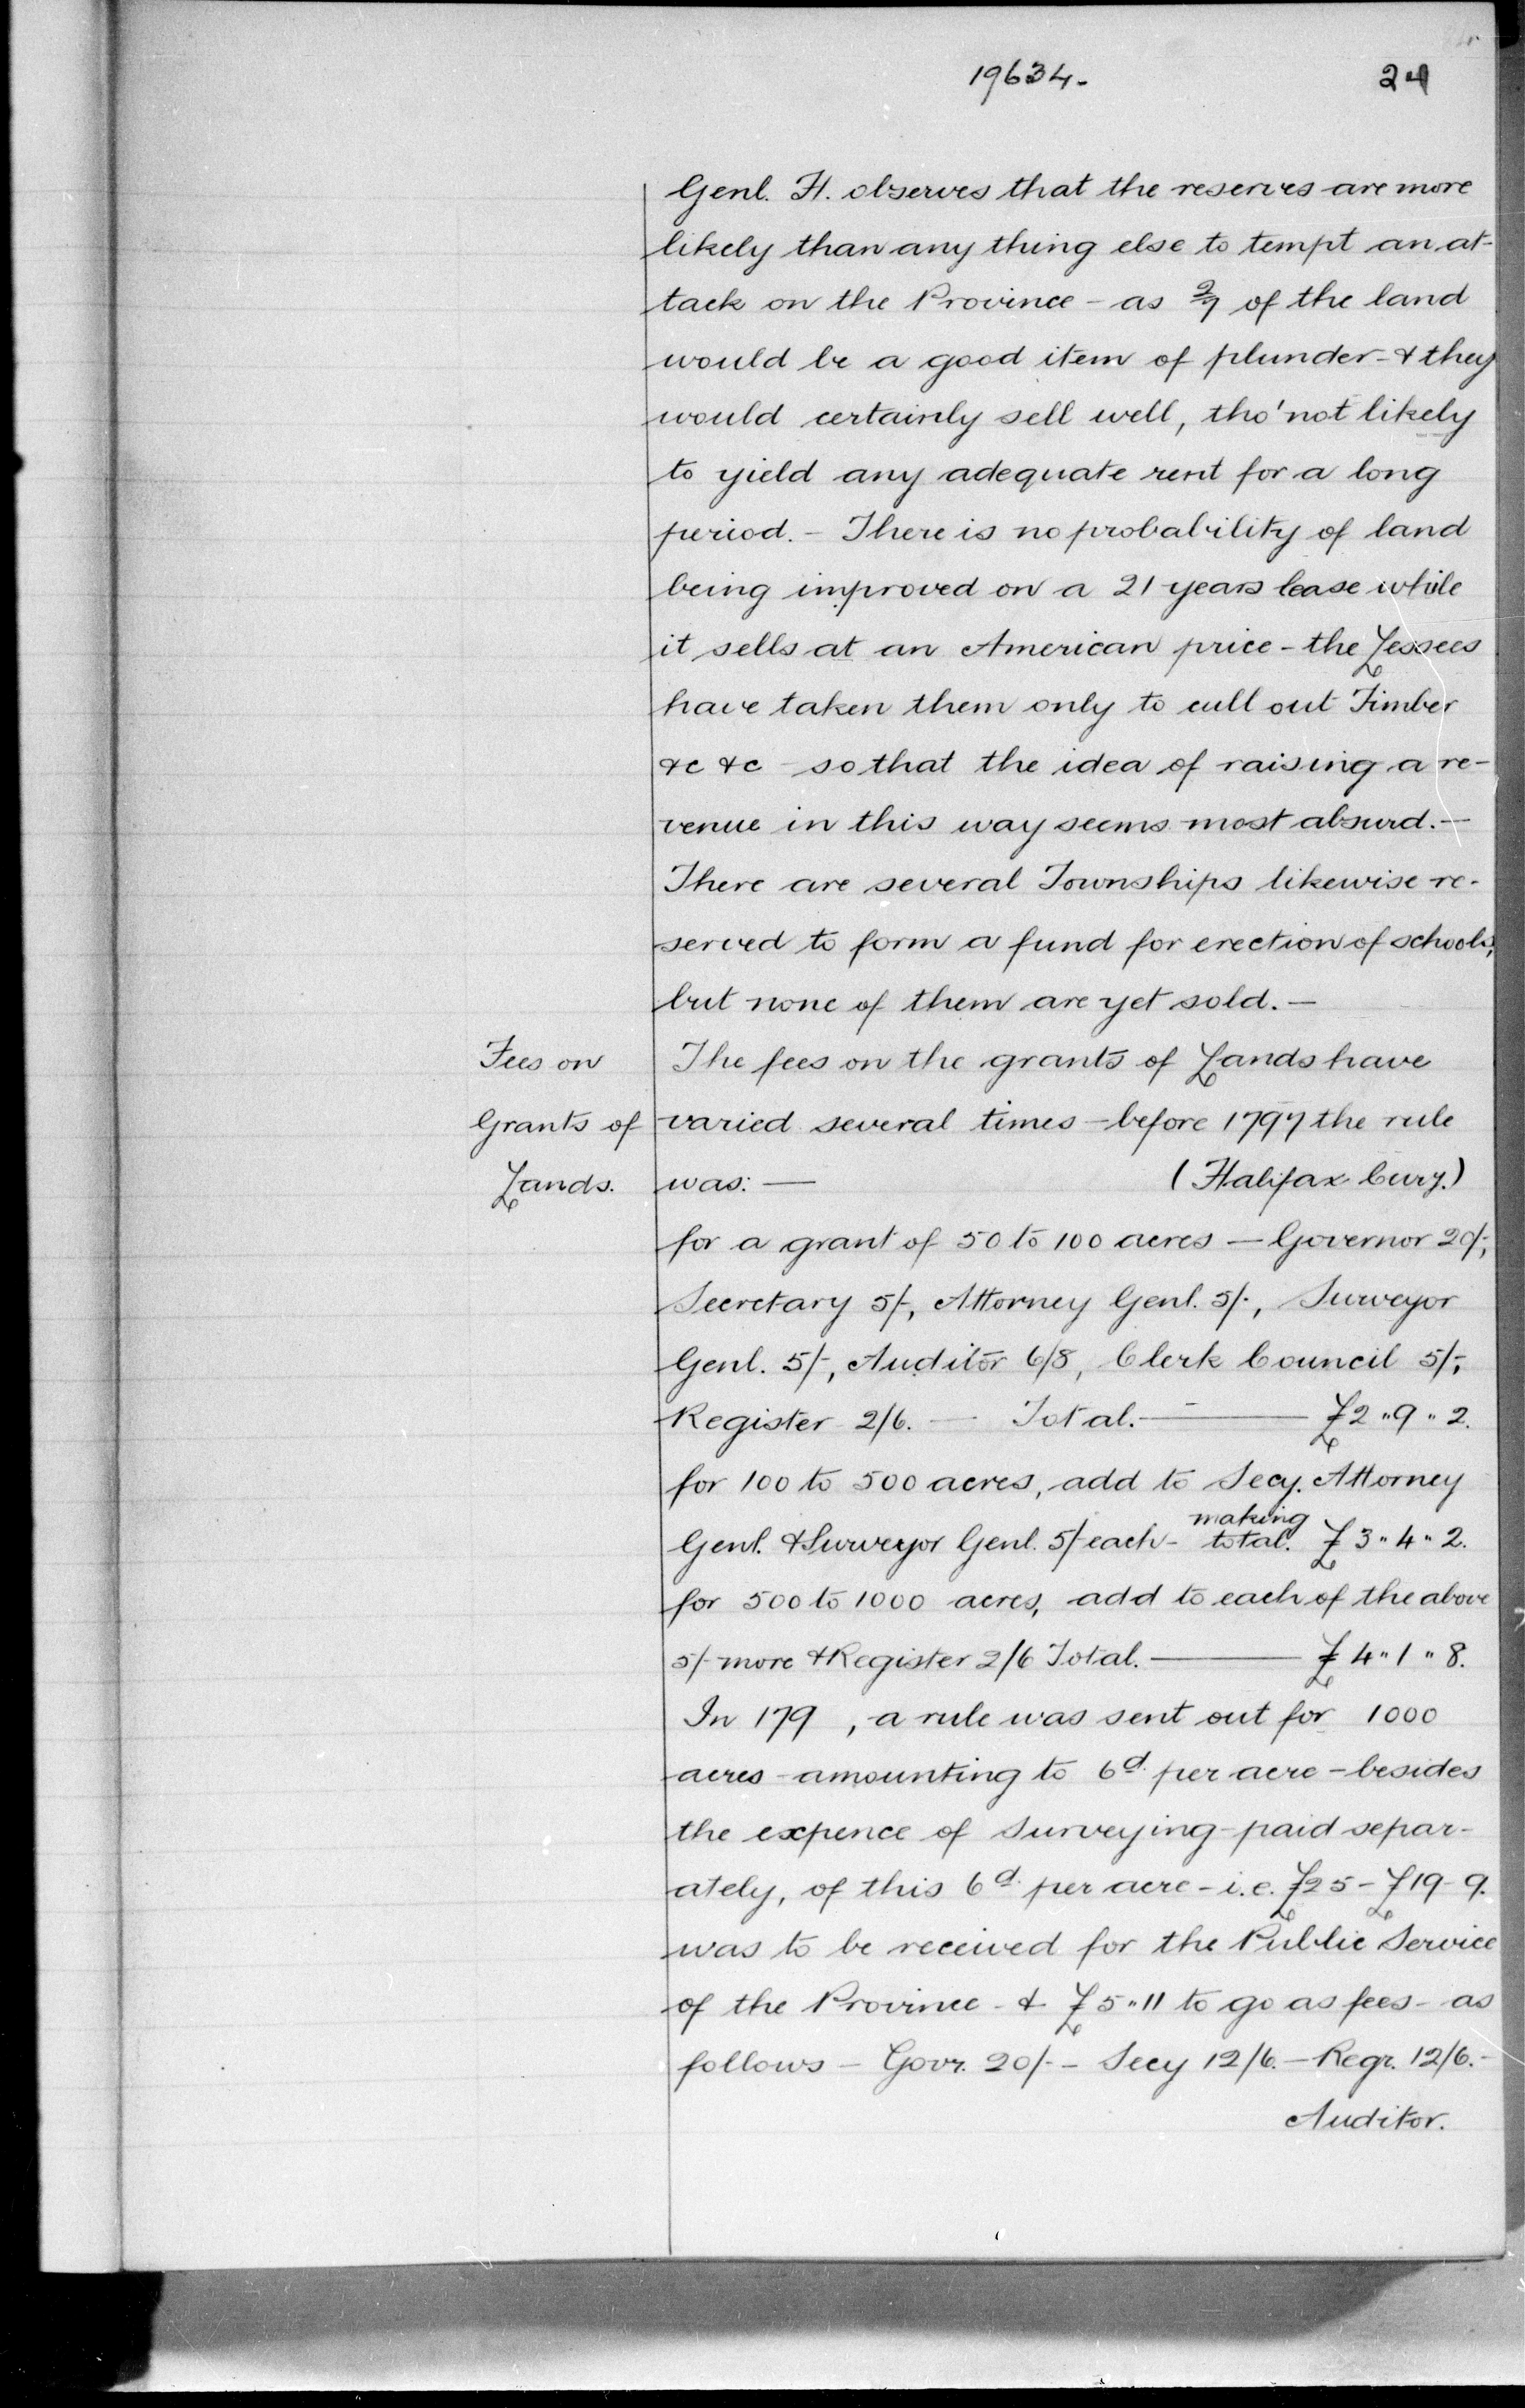 19634. 24
Genl. H. observes that the reserves are more
likely than any thing else to tempt an at-
tack on the Province - as 2/7 of the land
would be a good item of plunder - & they
would certainly sell well, tho' not likely
to yield any adequate rent for a long
period. - There is no probability of land
being improved on a 21 years lease while
it sells at an American price - the Lessees
have taken them only to cull out Timber
&c &c - so that the idea of raising a re-
venue in this way seems most absurd. -
There are several Townships likewise re-
served to form a fund for erection of schools,
but none of them are yet sold. -
Fees on
Grants of
Lands.
The fees on the grants of Lands have
varied several times - before 1797 the rule
was: — (Halifax Cury.)
for a grant of 50 to 100 acres — Governor 20/-,
Secretary 5/-, Attorney Genl. 5/-, Surveyor
Genl. 5/-, Auditor 6/8, Clerk Council 5/-,
Register 2/6. — Total. — £2 " 9 " 2.
for 100 to 500 acres, add to Secy. Attorney
Genl. & Surveyor Genl. 5/- each - making total. £3 " 4 " 2.
for 500 to 1000 acres, add to each of the above
5/- more & Register 2/6 Total. — £4 " 1 " 8.
In 179 , a rule was sent out for 1000
acres - amounting to 6d. per acre - besides
the expence of Surveying - paid separ-
ately, of this 6d. per acre - i.e. £25 - £19 - 9.
was to be received for the Public Service
of the Province - & £5 " 11 to go as fees - as
follows - Govr. 20/- - Secy 12/6. - Regr. 12/6. -
Auditor.